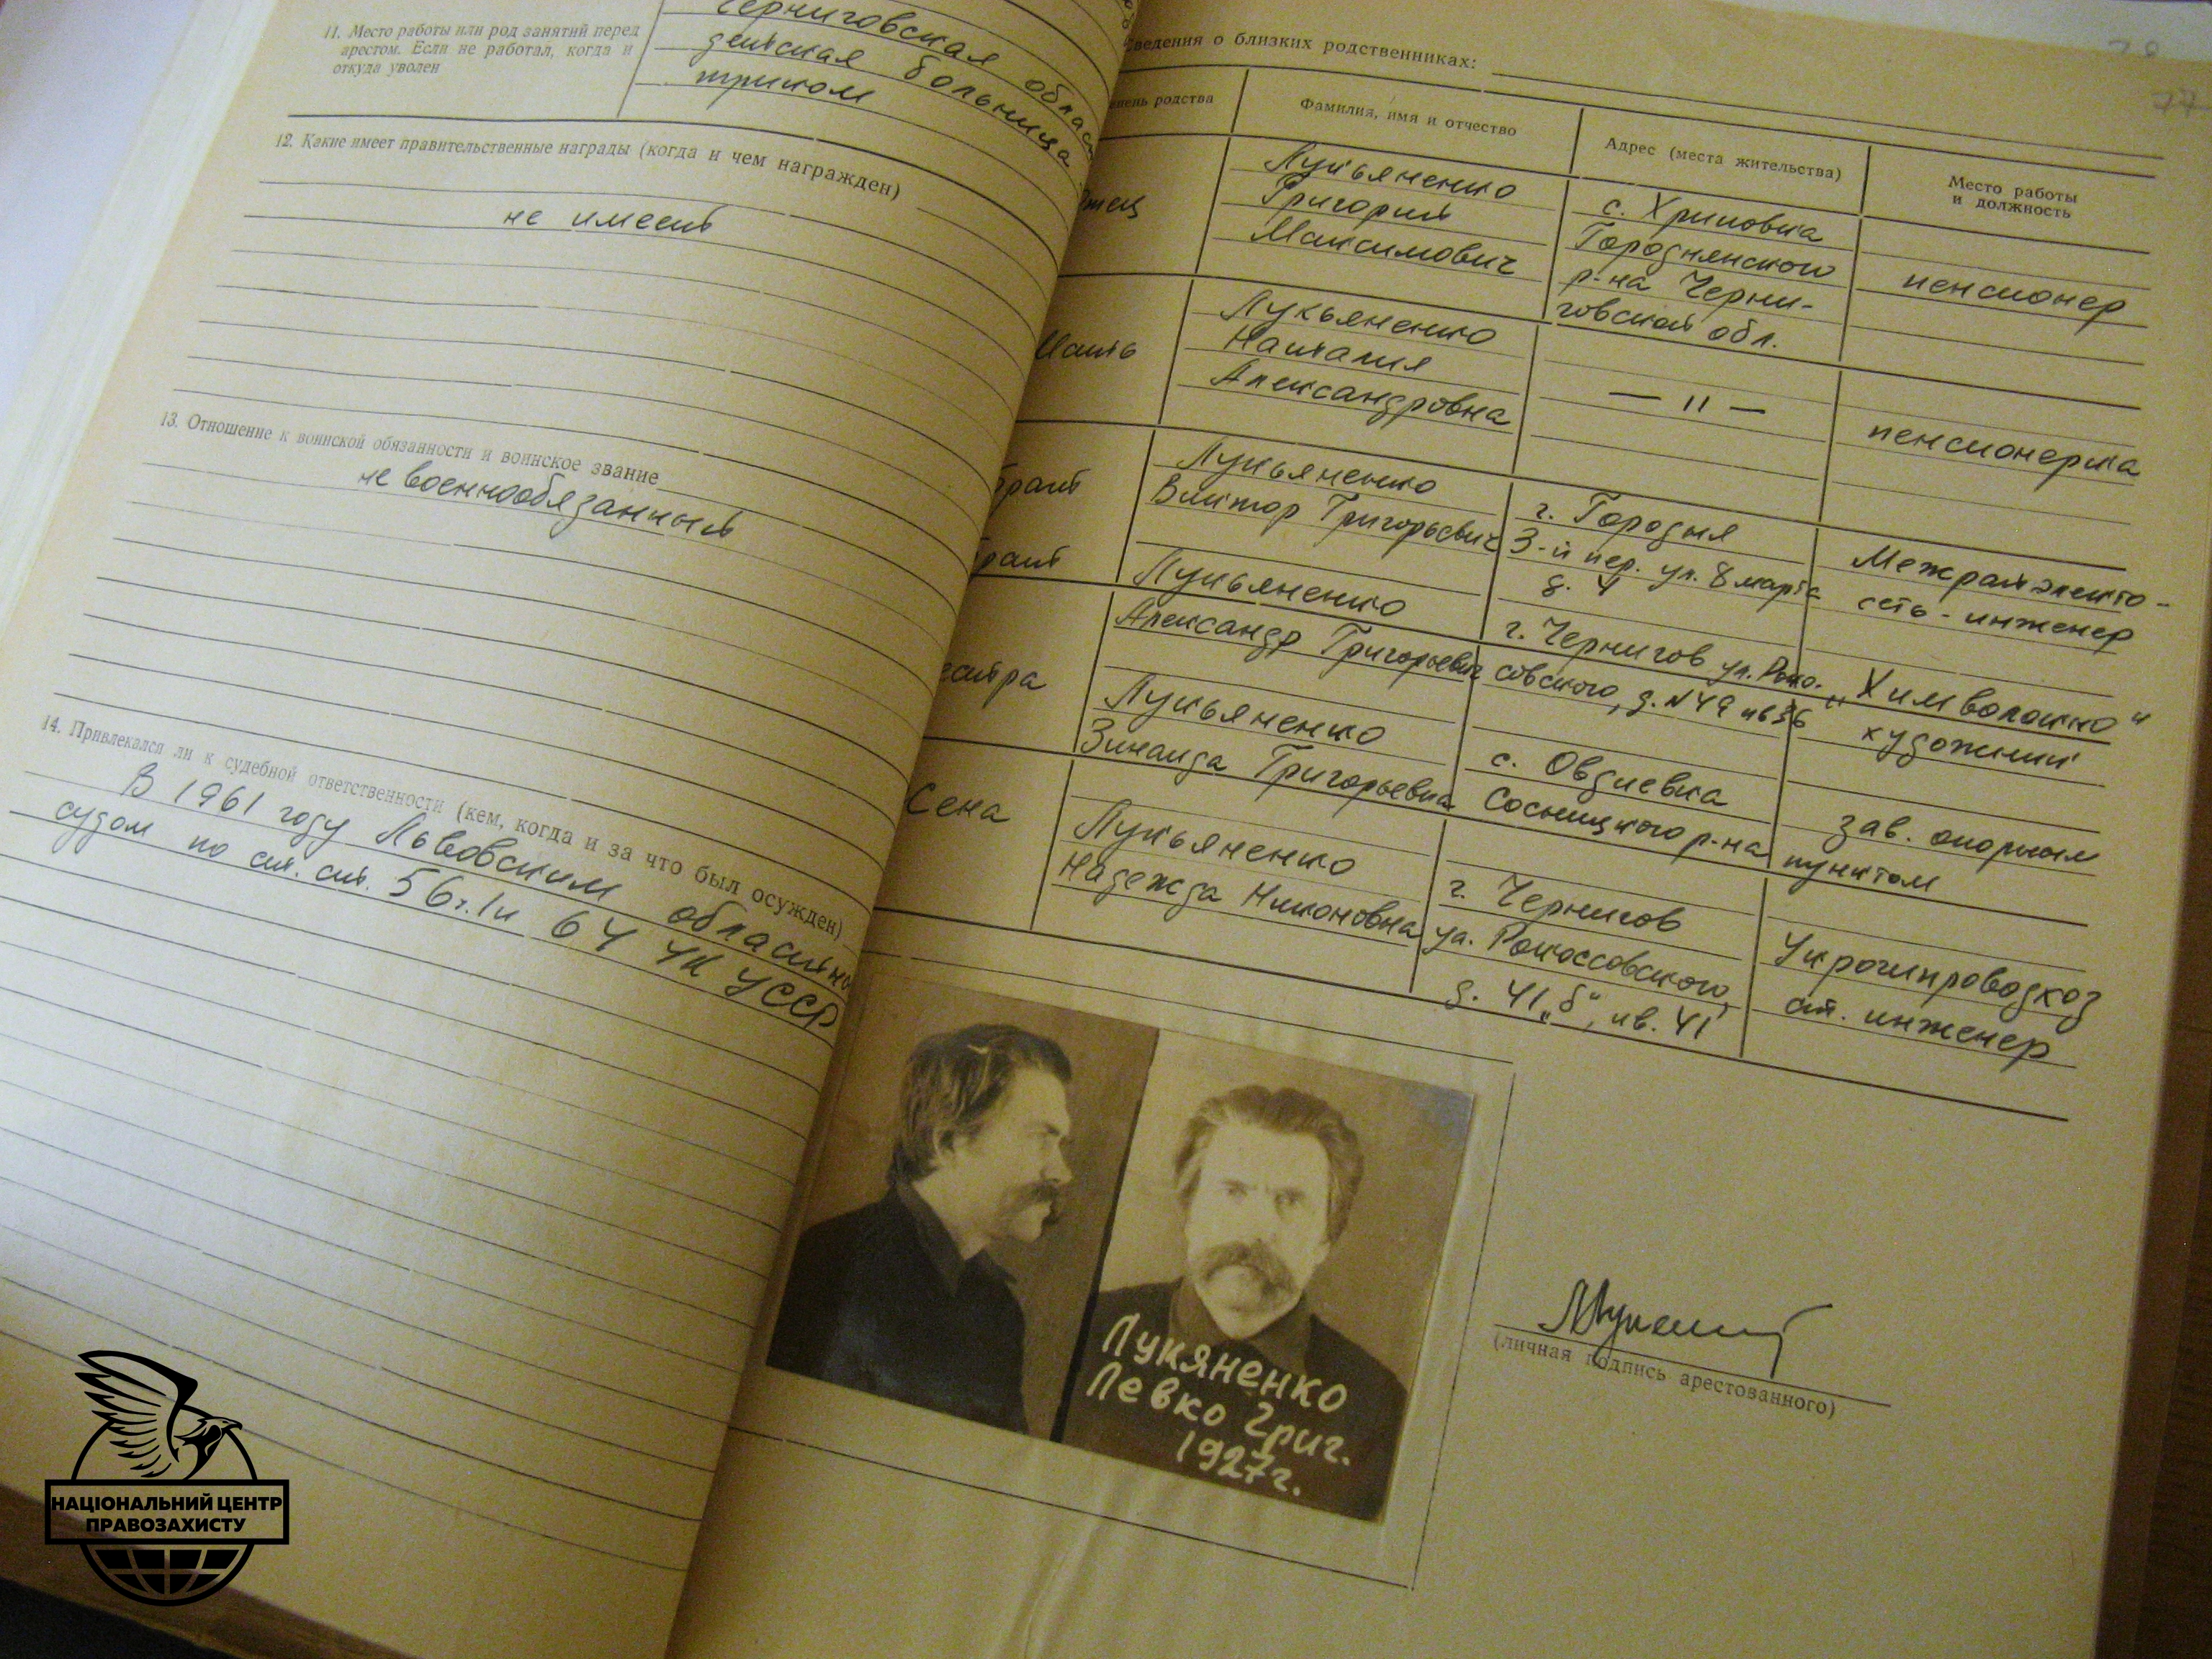 11. Место работы или род занятий перед
арестом. Если не работал, когда и
откуда уволен
Черниговская облас
детская больница
12. Какие имеет правительственные награды (когда и чем награжден)
не имеет
13. Отношение к воинской обязанности и воинское звание
не военнообязанный
14. Привлекался ли к судебной ответственности (кем, когда и за что был осужден)
В 1961 году Львовским областны
судом по ст. ст. 56 ч. 1 и 64 УК УССР
Сведения о близких родственниках:
пень родства
Фамилия, имя и отчество
Адрес (места жительства)
Место работы
и должность
Отец
Лукьяненко
Григорий
Максимович
с. Хриповка
Городнянского
р-на Черни-
говской обл.
пенсионер
Мать
Лукьяненко
Наталия
Александровна
— 11 —
пенсионерка
брат
Лукьяненко
Виктор Григорьевич
г. Городня
3-й пер. ул. 8 марта
д. 4
Межрайэлекто-
сеть - инженер
брат
Лукьяненко
Александр Григорьевич
г. Чернигов ул. Роко.
совского, д. № 49 кв 36
"Химволокно"
художник
естра
Лукьяненко
Зинаида Григорьевна
с. Овдиевка
Сосницкого р-на
зав. опорным
пунктом
Жена
Лукьяненко
Надежда Никоновна
г. Чернигов
ул. Рокоссовского,
д. 41 „б", кв. 41
Укргипроводхоз
ст. инженер
Лукяненко
Левко Григ.
1927г.
(личная подпись арестованного)
НАЦІОНАЛЬНИЙ ЦЕНТР
ПРАВОЗАХИСТУ